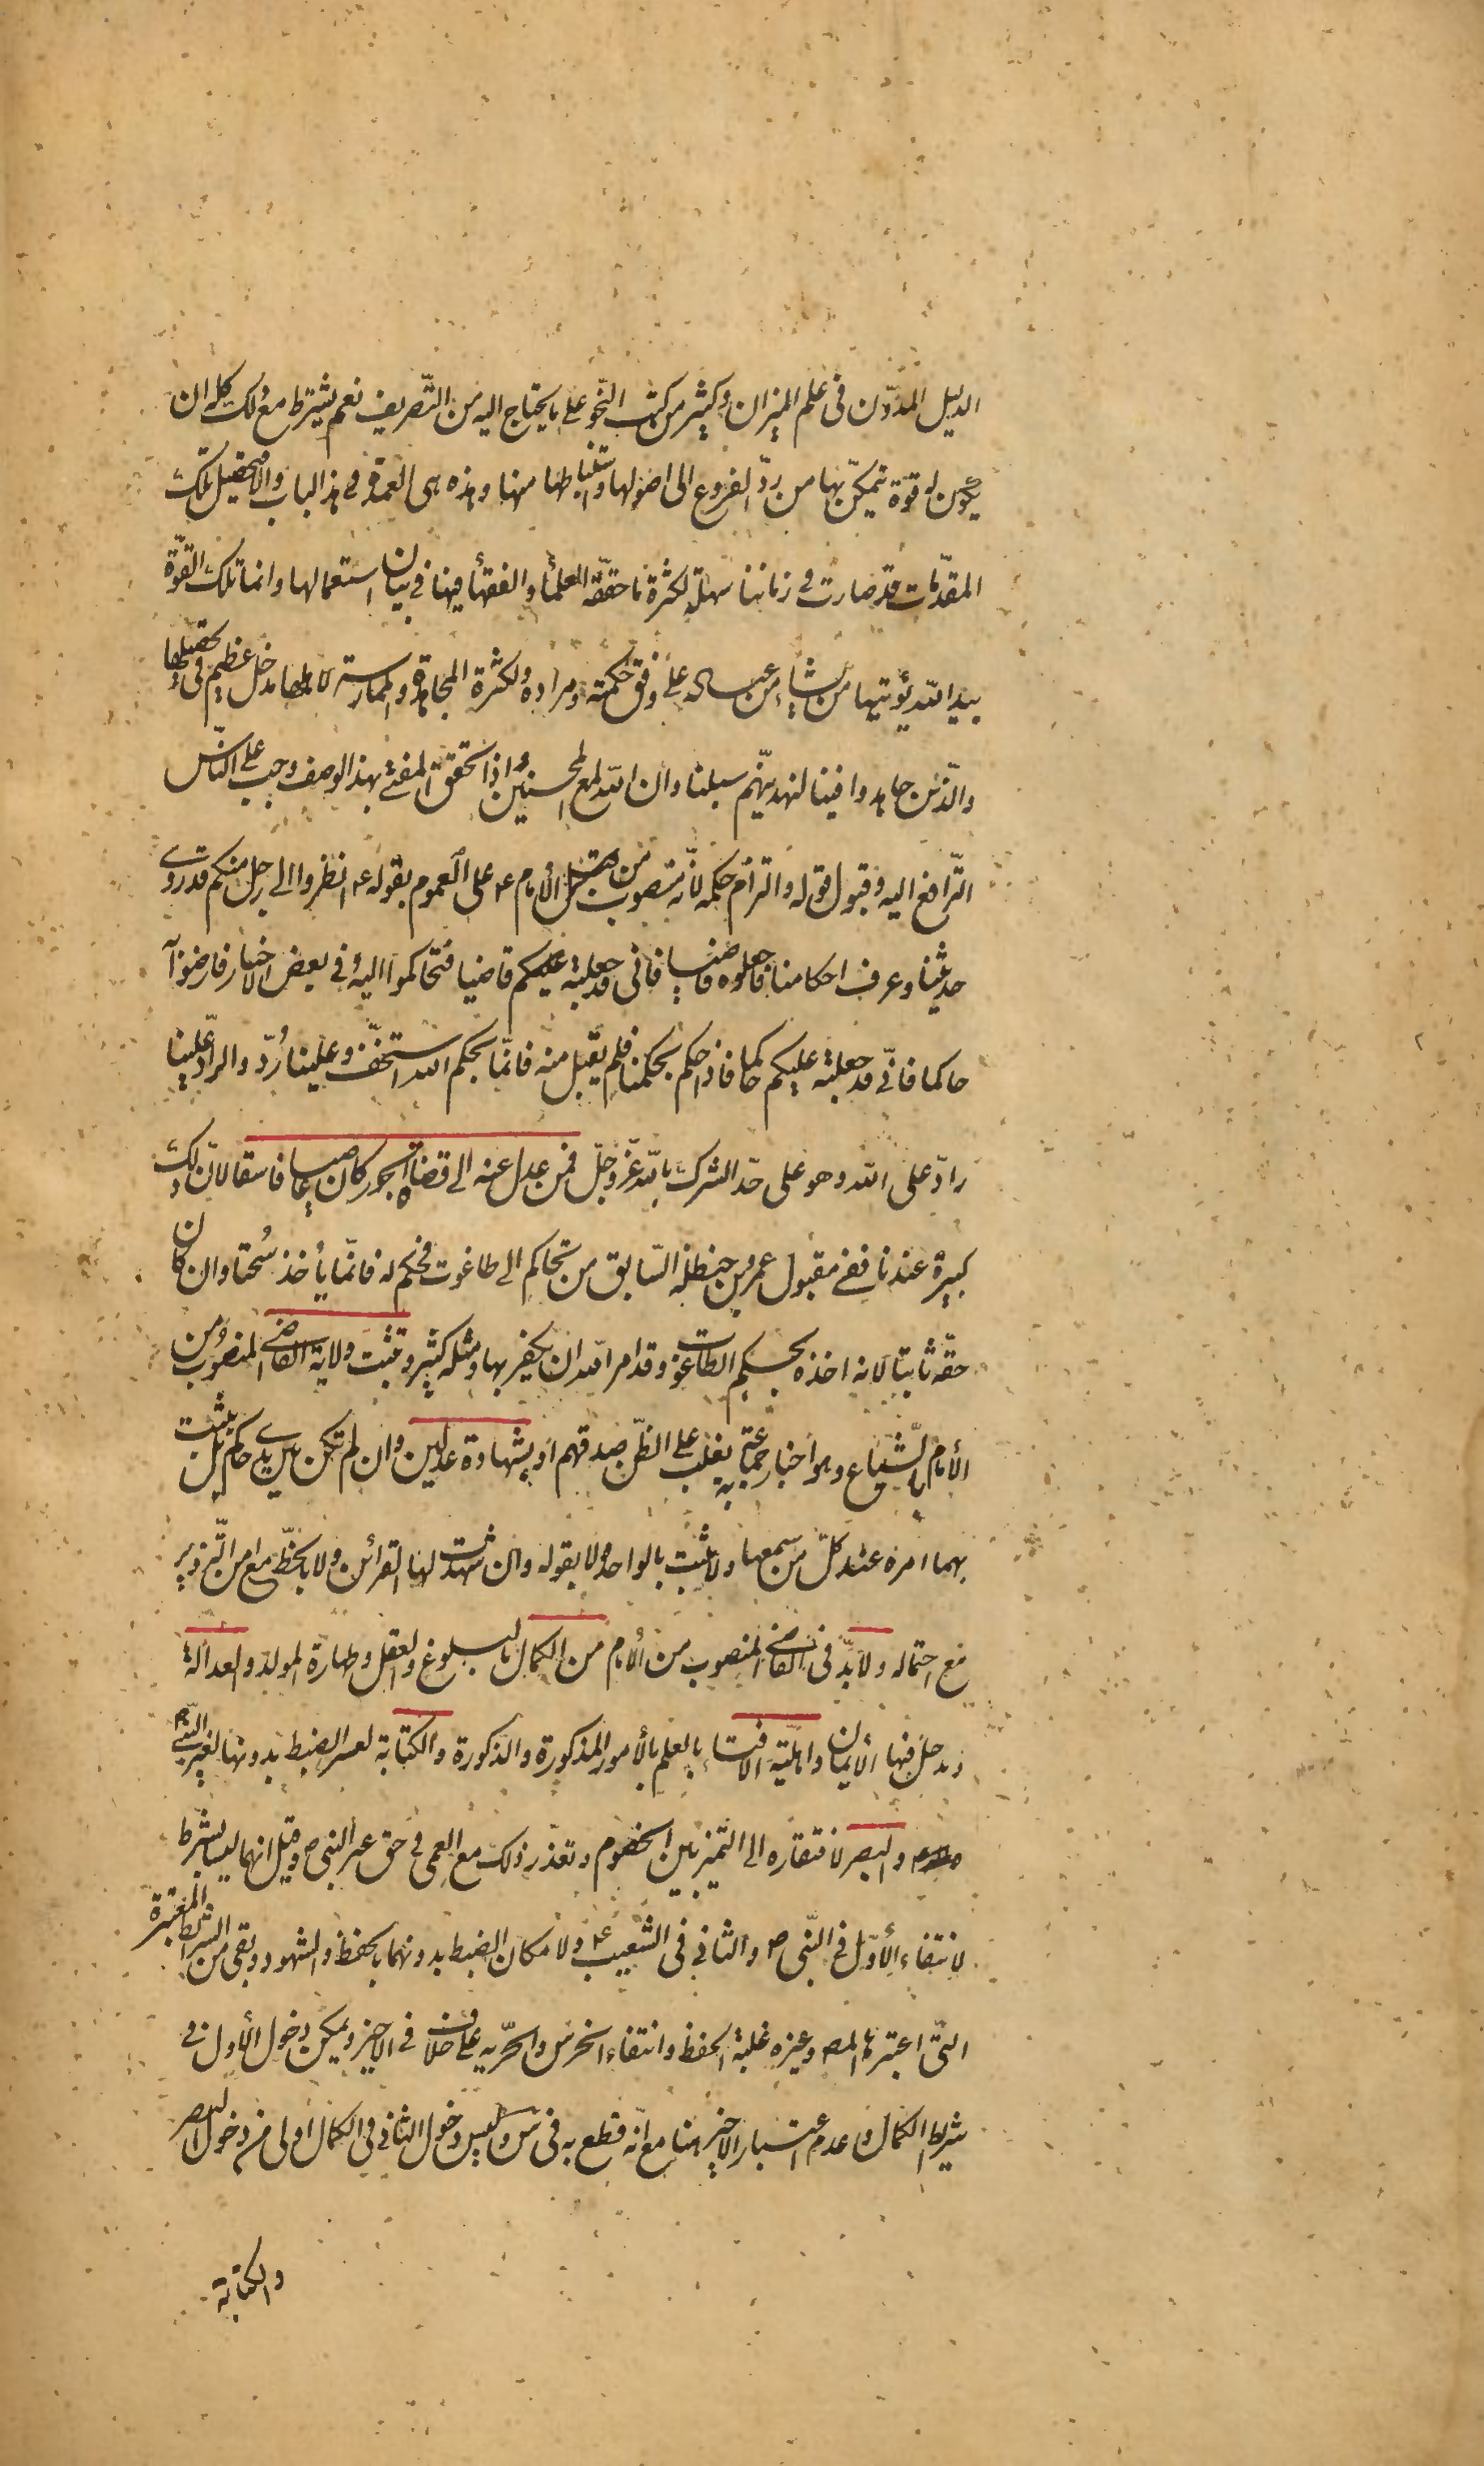 الدليل المدوّن فى علم الميزان وكثير من كتب النّحو على ما يحتاج اليه من التّصريف نعم يشترط مع ذلك كله ان
يكون له قوة يتمكّن بها من ردّ الفروع الى اصولها واستنباطها منها وهذه هى العمدة فى هذا الباب والا فتحصيل تلك
المقدّمات قد صارت فى زماننا سهلة لكثرة ما حقّقه العلماء والفقهاء فيها فى بيان استعمالها وانما تلك القوّة
بيد الله يؤتيها من يشاء من عباده على وفق حكمته ومراده ولكثرة المجاهدة والممارسة لاهلها مدخل عظيم فى تحصيلها
والّذين جاهدوا فينا لنهدينّهم سبلنا وان الله لمع المحسنين واذا تحقق المفتى بهذا الوصف وجب على النّاس
التّرافع اليه وقبول قوله والتزام حكمه لانّه منصوب من قبل الأمام ع على العموم بقوله ع انظروا الى رجل منكم قد روى
حديثنا وعرف احكامنا فاجعلوه قاضيا فانى قد جعلته عليكم قاضيا فتحاكموا اليه وفى بعض الاخبار فارضوا به
حاكما فانّى قد جعلته عليكم حاكما فاذا حكم بحكمنا فلم يقبل منه فانّما بحكم الله استخفّ وعلينا رُدّ والرادّ علينا
رادّ على الله وهو على حدّ الشرك بالله عزّ وجلّ فمن عدل عنه الى قضاة الجور كان عاصيا فاسقا لانّ ذلك
كبيرة عندنا ففى مقبول عمرو بن حنظلة السّابق من تحاكم الى طاغوت فحكم له فانّما يأخذ سُحتا وان كان
حقّه ثابتا لانه اخذه بحكم الطاغوت وقد امر الله ان يكفر بها ومثله كثير وتثبت ولاية القاضى المنصوب من
الأمام بالشّياع وهو اخبار جماعة به يغلب على الظّن صدقهم او بشهادة عدلين وان لم تكن بين يدى حاكم بل يثبت
بهما امره عند كلّ من سمعها ولا يثبت بالواحد ولا بقوله وان شهدت لها القرائن ولا بالخطّ مع امن التّزوير
مع احتماله ولا بدّ فى القاضى المنصوب من الأمام من الكمال بالبلوغ والعقل وطهارة المولد والعدالة
ويدخل فيها الايمان واهليّة الافتاء بالعلم بالأمور المذكورة والذكورة والكتابة لعسر الضبط بدونها لغير النّبى ص
والبصر لافتقاره الى التميز بين الخصوم وتعذّر ذلك مع العمى فى حق غير النبى ص وقيل انهما ليسا بشرط
لانتفاء الأوّل فى النّبى ص والثانى فى الشعيب ع ولامكان الضبط بدونهما بالحفظ والشهود وبقى من الشرائط المعتبرة
التّى اعتبرها المص وغيره غلبة الحفظ وانتفاء الخرس والحرّيه على خلاف فى الاخير ويمكن دخول الأول فى
شرط الكمال وعدم اعتبار الاخير هنا مع انّه قطع به فى س وليس دخول الثانى فى الكمال اولى من دخول البصر
والكتابة